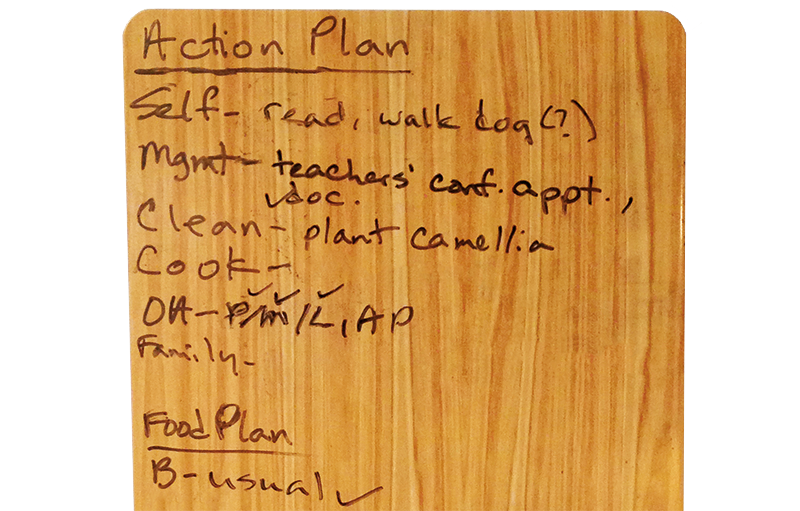 Action Plan
Self- read, walk dog (?)
Mgmt- teachers' conf. appt.,
✓doc.
Clean- plant camellia
Cook-
OA- P/M/L, AP
Family-
Food Plan
B-usual ✓